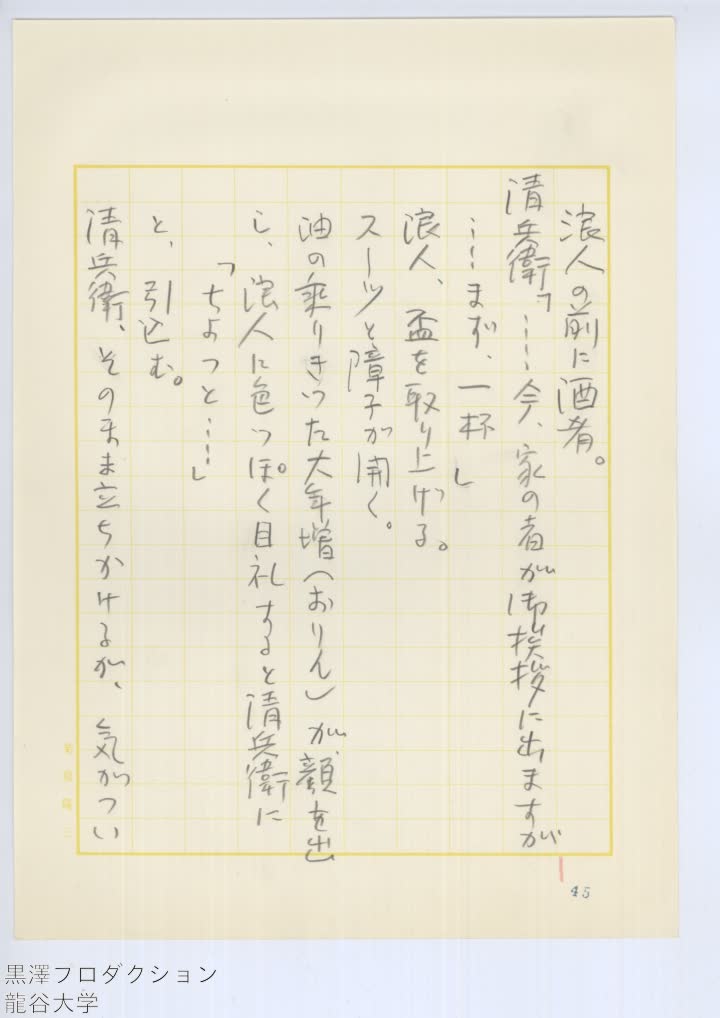 浪人の前に酒肴。
清兵衛「……今、家の者が御挨拶に出ますが
……まず、一杯」
浪人、盃を取り上げる。
スーツと障子が開く。
油の乗りきつた大年増（おりん）が、顔を出
し、浪人に色つぽく目礼すると清兵衛に
「ちよつと……」
と、引込む。
清兵衛、そのまま立ちかけるが、気がつい
45
黒澤プロダクション
龍谷大学